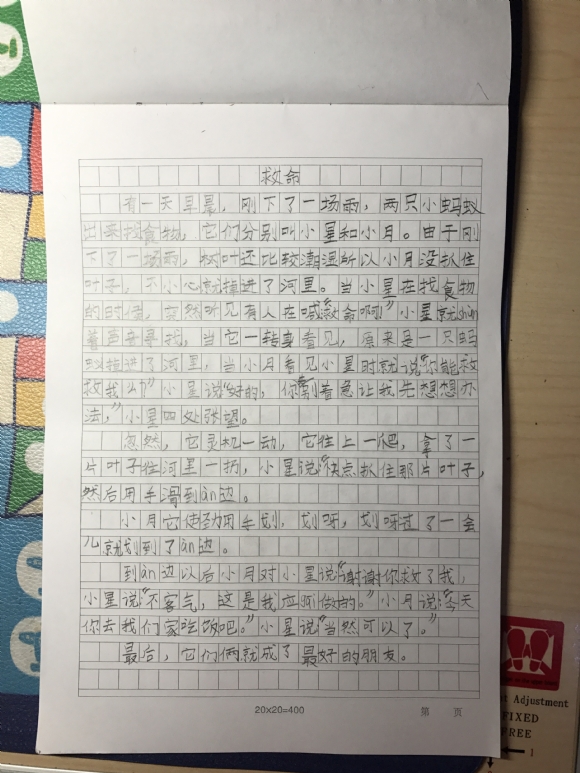 救命
有一天早晨，刚下了一场雨，两只小蚂蚁
出来找食物，它们分别叫小星和小月。由于刚
下了一场雨，树叶还比较潮湿所以小月没抓住
叶子，不小心就掉进了河里。当小星在找食物
的时候，突然听见有人在喊“救命啊啊”小星就shùn
着声音寻找，当它一转身看见，原来是一只蚂
蚁掉进了河里，当小月看见小星时就说“你能救
救我么”小星说“好的，你别着急让我先想想办
法，”小星四处张望。
忽然，它灵机一动，它往上一爬，拿了一
片叶子往河里一扔，小星说“快点抓住那片叶子，
然后用手滑到àn边。
小月它使劲用手划，划呀，划呀过了一会
儿就划到了àn边。
到àn边以后小月对小星说“谢谢你救了我，
小星说“不客气，这是我应该做的。”小月说“今天
你去我们家吃饭吧。”小星说“当然可以了。”
最后，它们俩就成了最好的朋友。
20×20=400 第 页
t Adjustment
FIXED
FREE
1